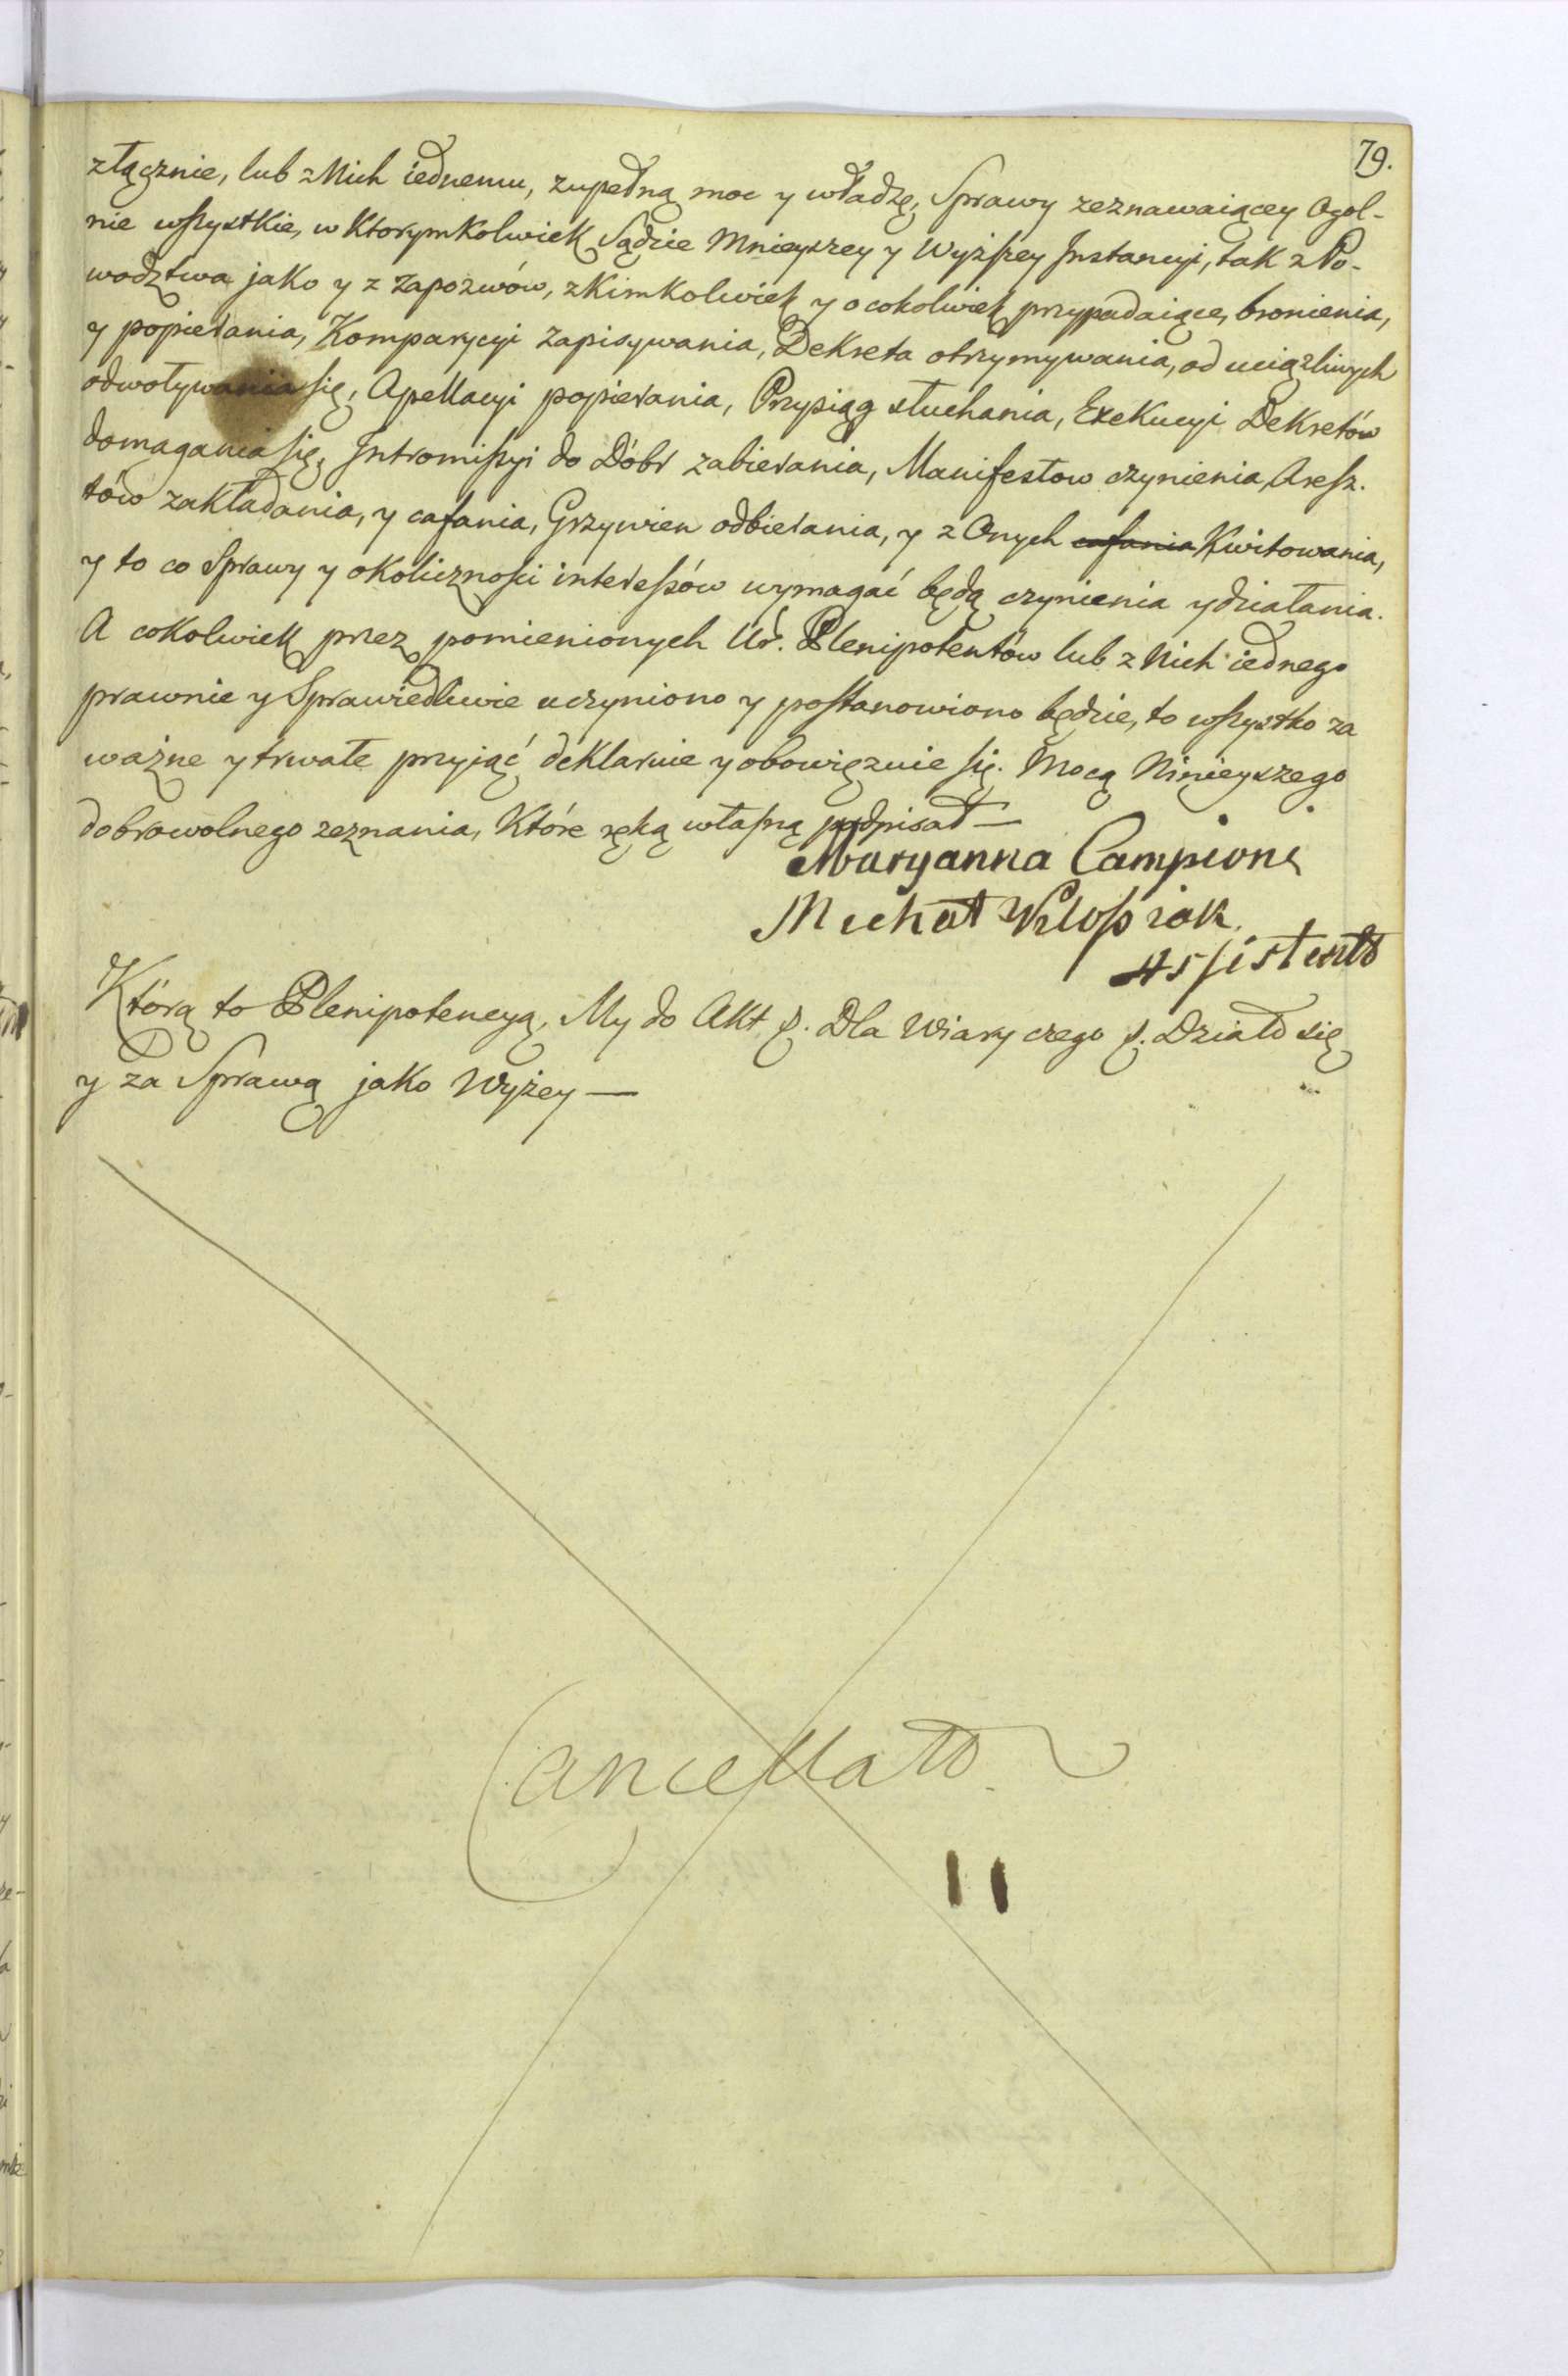 79.
złącznie, lub z Nich iednemu, zupełną moc y władzę, Sprawy zeznawaiącey Ogol-
nie wszystkie, w Ktorymkolwiek Sądzie Mnieyszey y Wyższey Jnstancyi, tak z Po-
wodztwa jako y z Zapozwów, z Kimkolwiek y o cokolwiek przypadaiące, bronienia,
y popierania, Komparycyi Zapisywania, Dekreta otrzymywania, od uciążliwych
odwoływania się, Apellacyi popierania, Przysiąg słuchania, Exekucyi Dekretów
domagania się, Jntromissyi do Dóbr zabierania, Manifestow czynienia, Aresz.
tów zakładania, y cafania, Grzywien odbierania, y z Onych cafania Kwitowania,
y to co Sprawy y okoliczności interessów wymagać będą czynienia y działania.
A cokolwiek przez pomienionych Ur. Plenipotentów lub z Nich iednego
prawnie y Sprawiedliwie uczyniono y postanowiono będzie, to wszystko za
ważne y trwałe przyjąć deklaruie y obowięzuie się. Mocą Ninieyszego
dobrowolnego zeznania, Które ręką własną podpisał —
Maryanna Campioni
Michał
Assistent
Którą to Plenipotencyą, My do Akt p. Dla Wiary czego p. Działo się
y za Sprawą jako Wyżey —
Cancellato